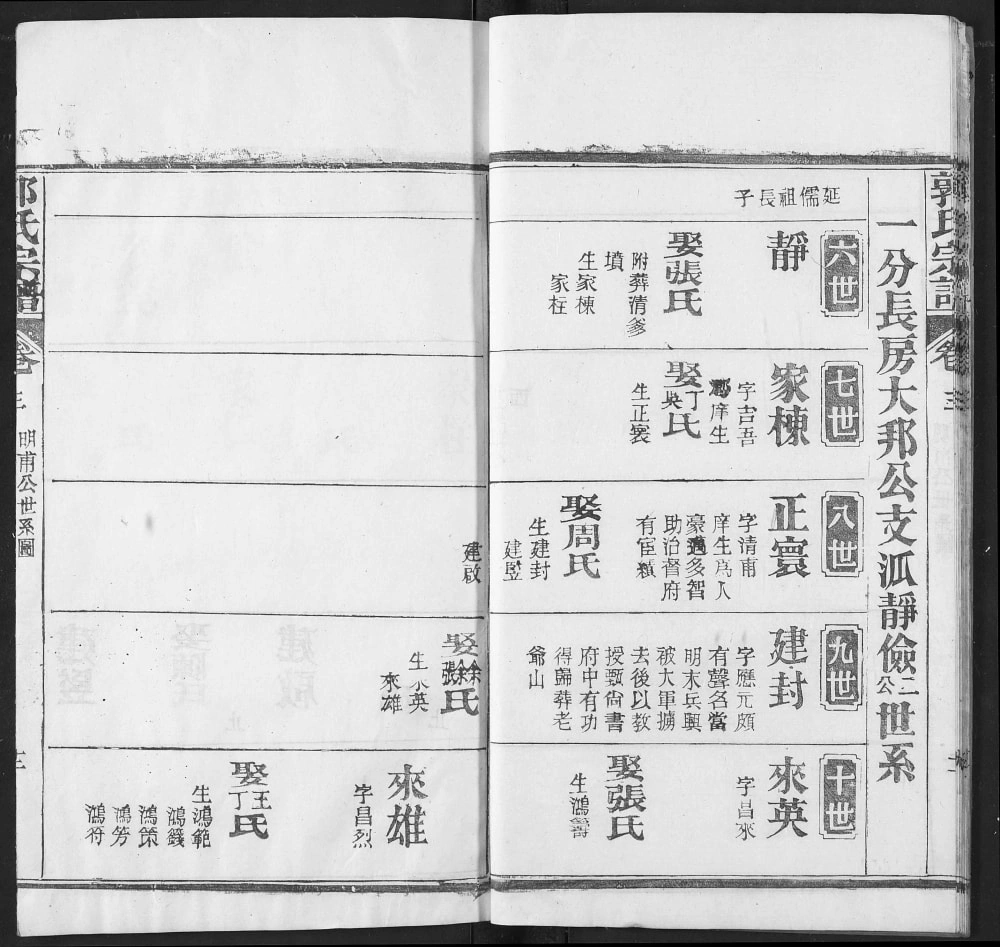 郭氏宗譜
卷三
一分長房大邦公支派靜儉二公世系
延儒祖長子
六世
靜
娶張氏
附葬清爹
墳
生家棟
家柱
七世
家棟
字吉吾
郡庠生
娶丁氏
生正寰
八世
正寰
字清甫
庠生爲人
豪邁多智
助治督府
有宦績
娶周氏
生建封
建竪
建啟
九世
建封
字應元頗
有聲名當
明末兵興
被大軍擄
去後以教
授甄尙書
府中有功
得歸葬老
爺山
娶徐張氏
生來英
來雄
十世
來英
字昌來
娶張氏
生鴻籌
來雄
字昌烈
娶王丁氏
生鴻範
鴻籛
鴻策
鴻芳
鴻符
郭氏宗譜
卷三
明甫公世系圖